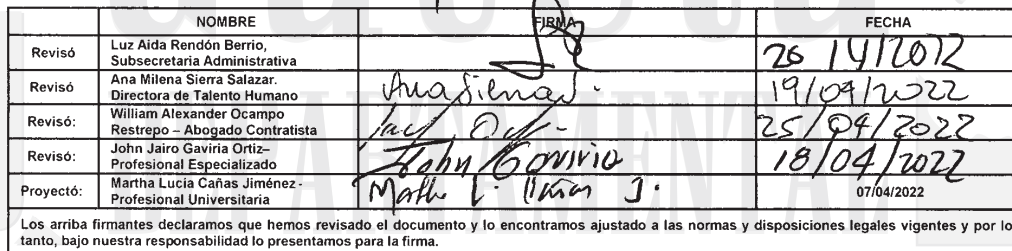 NOMBRE FIRMA FECHA
Revisó Luz Aida Rendón Berrio,
Subsecretaria Administrativa 26/4/2022
Revisó Ana Milena Sierra Salazar.
Directora de Talento Humano Ana Sierra S. 19/04/2022
Revisó: William Alexander Ocampo
Restrepo – Abogado Contratista 25/04/2022
Revisó: John Jairo Gaviria Ortiz–
Profesional Especializado John Gaviria 18/04/2022
Proyectó: Martha Lucia Cañas Jiménez -
Profesional Universitaria Martha L. Cañas J. 07/04/2022
Los arriba firmantes declaramos que hemos revisado el documento y lo encontramos ajustado a las normas y disposiciones legales vigentes y por lo
tanto, bajo nuestra responsabilidad lo presentamos para la firma.